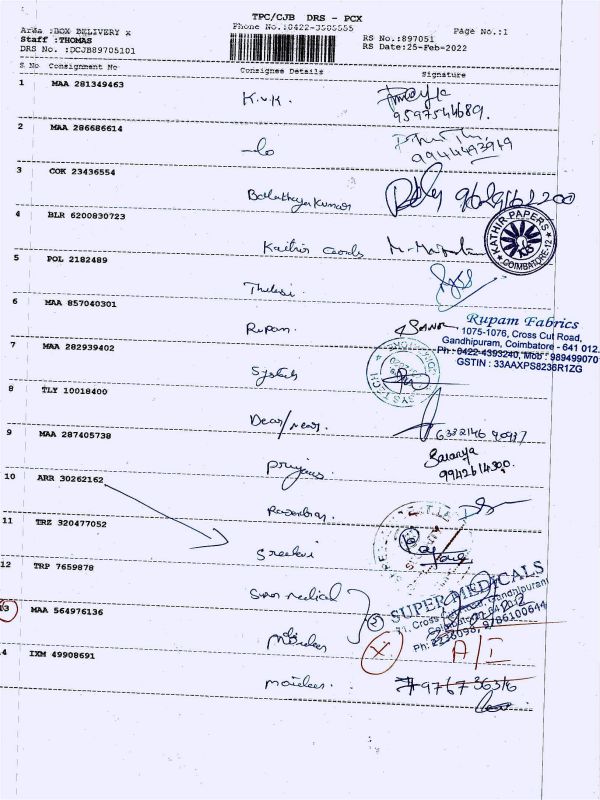 TPC/CJB DRS - PCX
Phone No.:0422-3505555
Page No.:1
Area :BOX DELIVERY x
Staff :THOMAS
DRS No. :DCJB89705101
RS No.:897051
RS Date:25-Feb-2022
S No Consignment No Consignee Details Signature
1 MAA 281349463
K.v.K.
9597544689.
2 MAA 286686614
9944493949
3 COK 23436554
Balathayakumar
4 BLR 6200830723
Kathir Goods
KATHIR PAPERS
COIMBATORE-12
5 POL 2182489
Thulasi
6 MAA 857040301
Rupam
Rupam Fabrics
1075-1076, Cross Cut Road,
Gandhipuram, Coimbatore - 641 012.
Ph : 0422-4393240, Mob : 989499070
GSTIN : 33AAXPS8236R1ZG
7 MAA 282939402
Systech
SYSTECH
8 TLY 10018400
Dear/near.
9 MAA 287405738
Priyaa
Saranya
9942614300.
10 ARR 30262162
11 TRZ 320477052
Sreedevi
12 TRP 7659878
Super medical
SUPER MEDICALS
71, Cross Cut Road, Gandhipuram
Coimbatore-641 012
Ph: 2236036, 9786100644
13 MAA 564976136
X
A/I
14 IXM 49908691